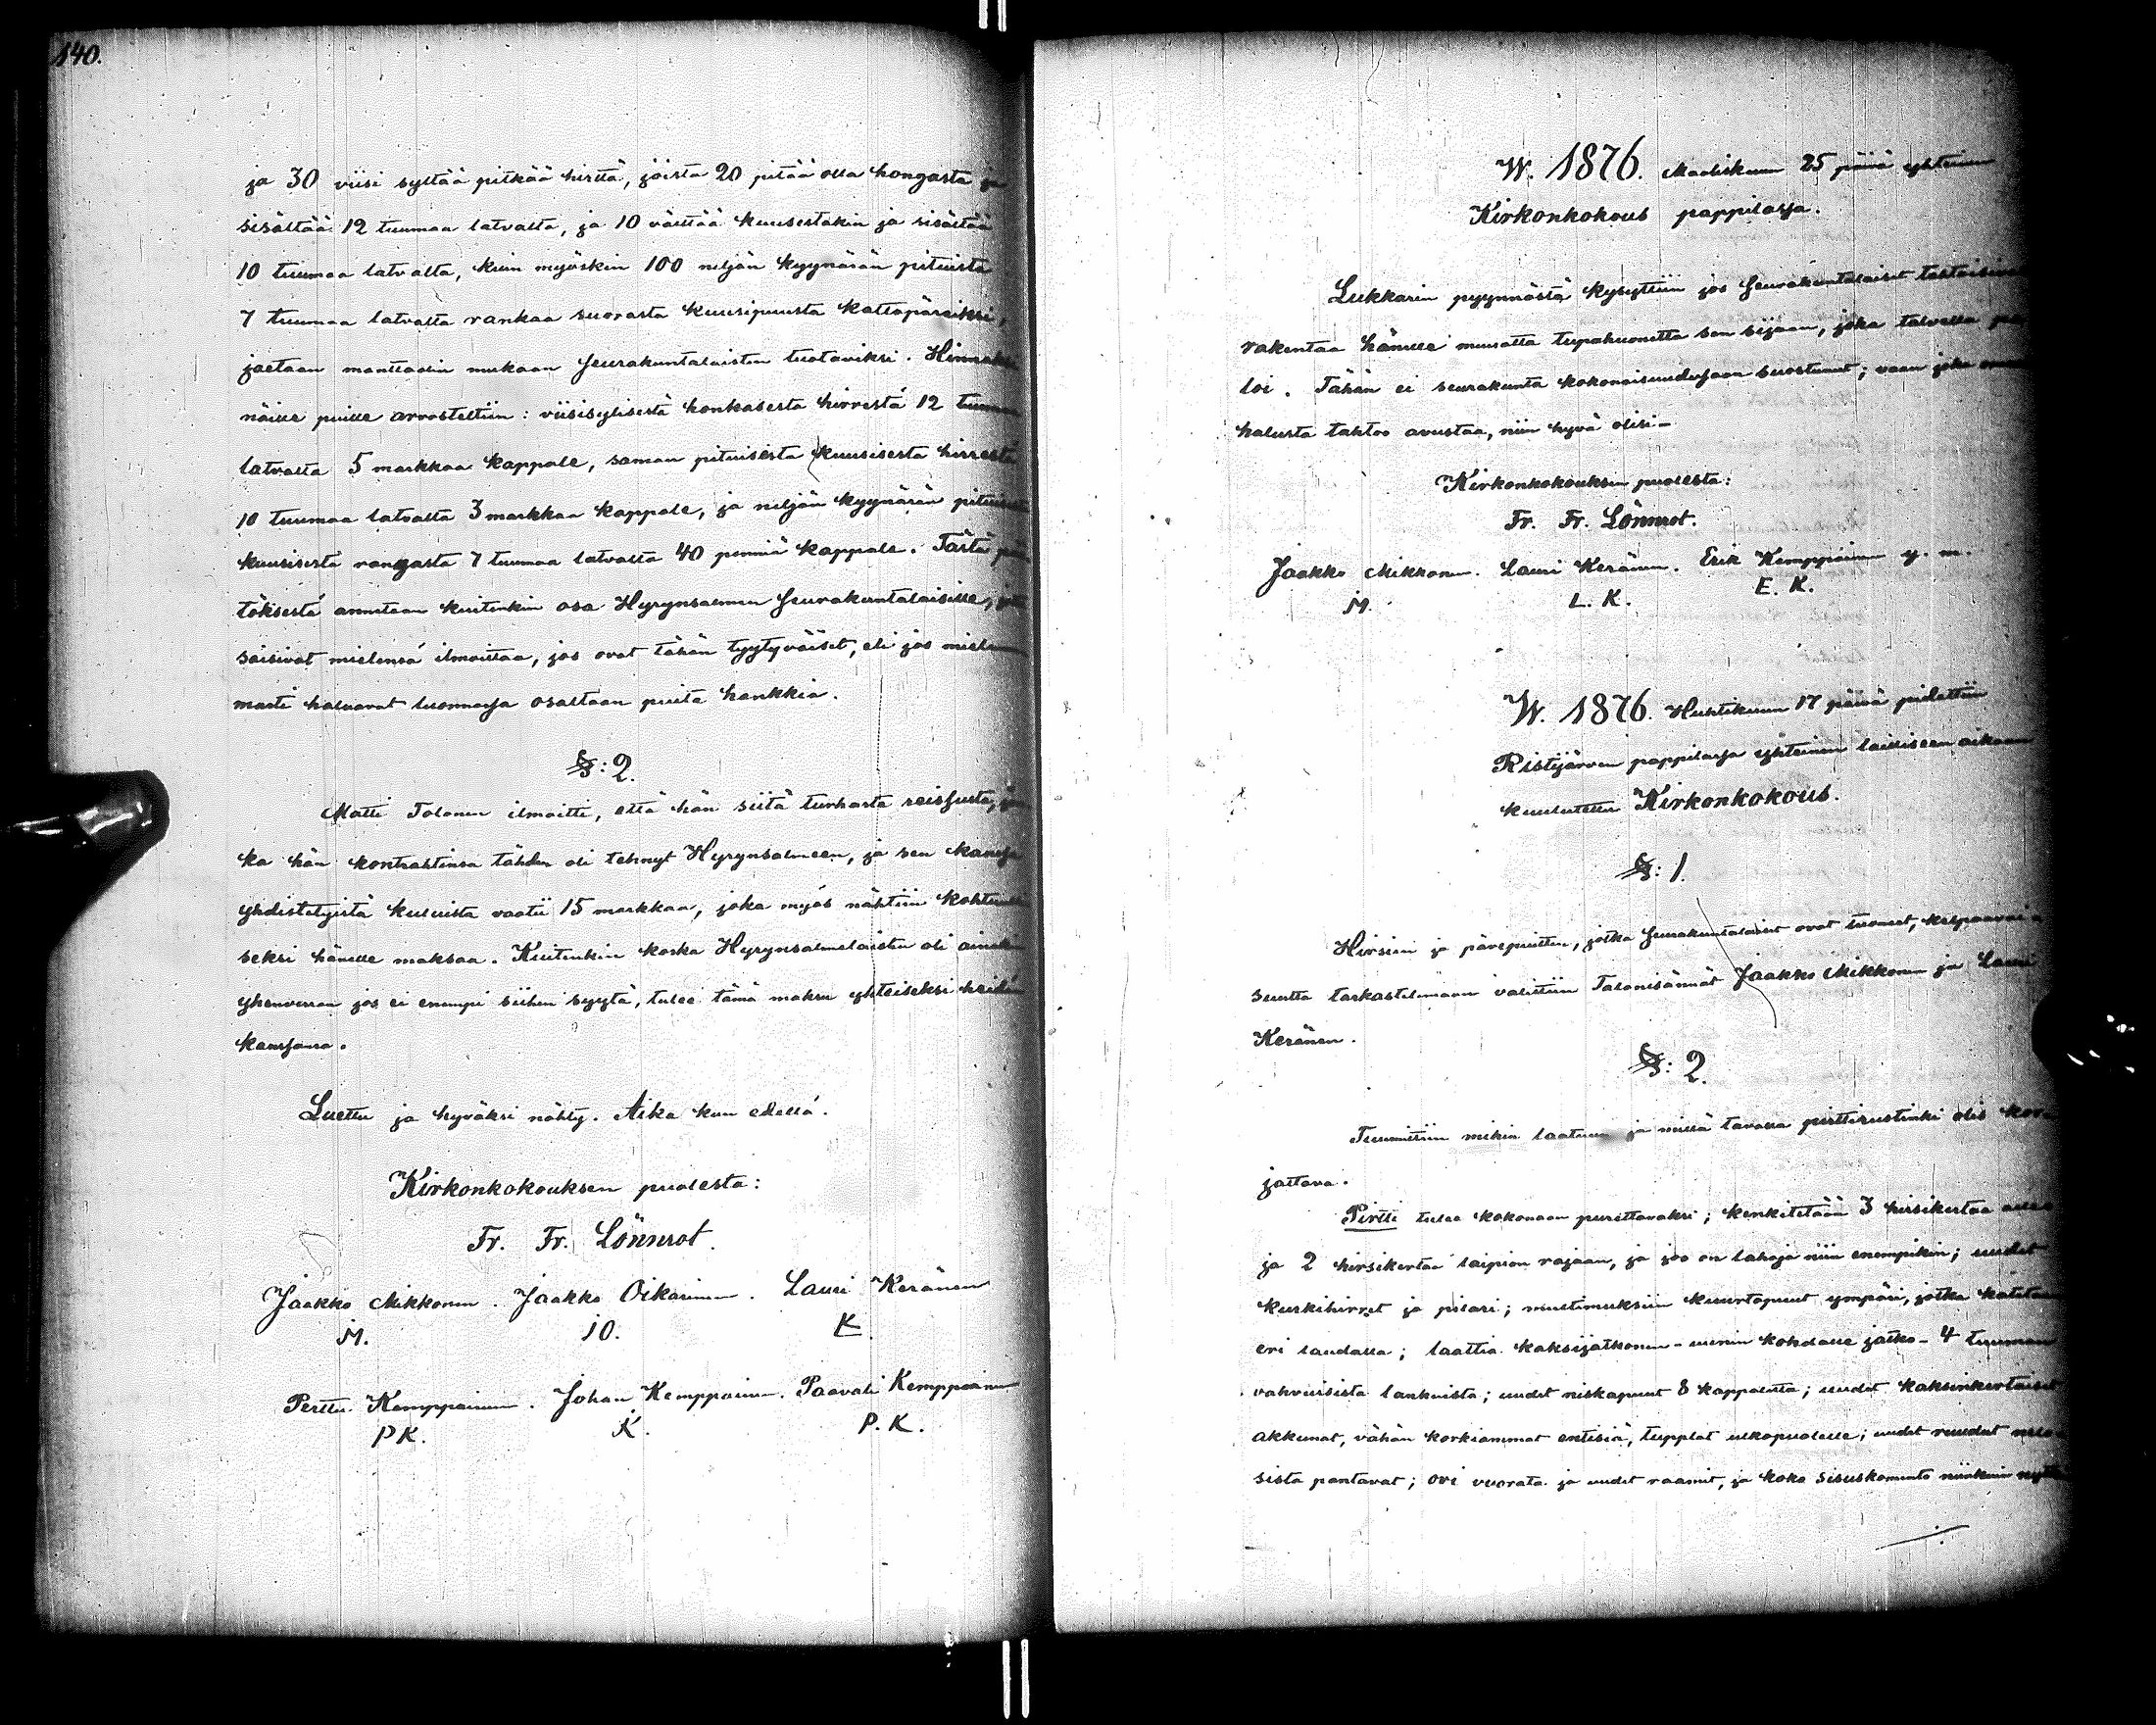 140.
ja 30 viisi syltää pitkää hirttä, joista 20 pitää olla hongasta ja
sisältää 12 tuumaa latvalta, ja 10 välttää kuusestakin ja sisältää
10 tuumaa latvalta, kuin myöskin 100 neljän kyynärän pituista
7 tuumaa latvalta rankaa suorasta kuusipuusta kattopäreiksi,
jaetaan manttaalin mukaan Seurakuntalaisten tuotaviksi. Hinnaksi
näille puille arvosteltiin: viisisylisestä honkasesta hirrestä 12 tuumaa
latvalta 5 markkaa kappale, saman pituisesta kuusisesta hirrestä
10 tuumaa latvalta 3 markkaa kappale, ja neljän kyynärän
kuusisesta rangasta 7 tuumaa latvalta 40 penniä kappale. Tästä
töksestä annetaan kuitenkin osa Hyrynsalmen Seurakuntalaisille,
saisivat mielensä ilmoittaa, jos ovat tähän tyytyväiset, eli jos
masti haluavat luonnossa osaltaan puita hankkia.
§: 2.
Matti Tolonen ilmoitti, että hän siitä turhasta reissusta, jon
ka hän kontrahtinsa tähden oli tehnyt Hyrynsalmeen, ja sen kanssa
yhdistetyistä kuluista vaatii 15 markkaa, joka myös nähtiin kohtuulli
seksi hänelle maksaa. Kuitenkin koska Hyrynsalmelaisten oli ainakin
yhenverran jos ei enempi siihen syytä, tulee tämä maksu yhteiseksi heidän
kanssansa.
Luettu ja hyväksi nähty. Aika kun edellä.
Kirkonkokouksen puolesta:
Fr. Fr. Lönnrot.
Jaakko Mikkonen. Jaakko Oikarinen. Lauri Keränen
M. IO. K.
Perttu Kemppainen. Johan Kemppainen. Paavali Kemppainen
PK. K. P. K.
W. 1876. Maaliskuun 25 päivä yhteinen
Kirkonkokous pappilassa.
Lukkarin pyynnöstä kysyttiin jos Seurakuntalaiset tahtoisivat
rakentaa hänelle muualta tupahuonetta sen sijaan, joka talvella pa
loi. Tähän ei seurakunta kokonaisuudessaan suostunut; vaan joka
halusta tahtoo avustaa, niin hyvä olisi-
Kirkonkokouksen puolesta:
Fr. Fr. Lönnrot.
Jaakko Mikkonen. Lauri Keränen. Erik Kemppainen y. m.
M. L. K. E. K.
W. 1876. Huhtikuun 17 päivä pidettiin
Ristijärven pappilassa yhteinen lailliseen aikaan
kuulutettu Kirkonkokous.
§: 1.
Hirsien ja pärepuitten, jotka Seurakuntalaiset ovat tuoneet, kelpaavai
suutta tarkastelemaan valittiin Talonisännät Jaakko Mikkonen ja Lauri
Keränen.
§: 2.
Tuumittiin mihin laatuun ja millä tavalla pirttirustinki olis kor
jattava.
Pirtti tulee kokonaan purettavaksi; kenkitetään 3 hirsikertaa
ja 2 hirsikertaa laipion rajaan, ja jos on lahoja niin enempikin; uudet
kurkihirret ja pilari; multimuksiin kuurtopuut ympäri, jotka
eri laudalla; laattia kaksijatkonen - uunin kohdalle jatko - 4 tuuman
vahvuisista lankuista; uudet niskapuut 8 kappaletta; uudet kaksinkertaiset
akkunat, vähän korkiammat entisiä, tupplat ulkopuolelle; uudet ruudut
sista pantavat; ovi vuorata ja uudet raamit, ja koko sisuskomento niinkuin